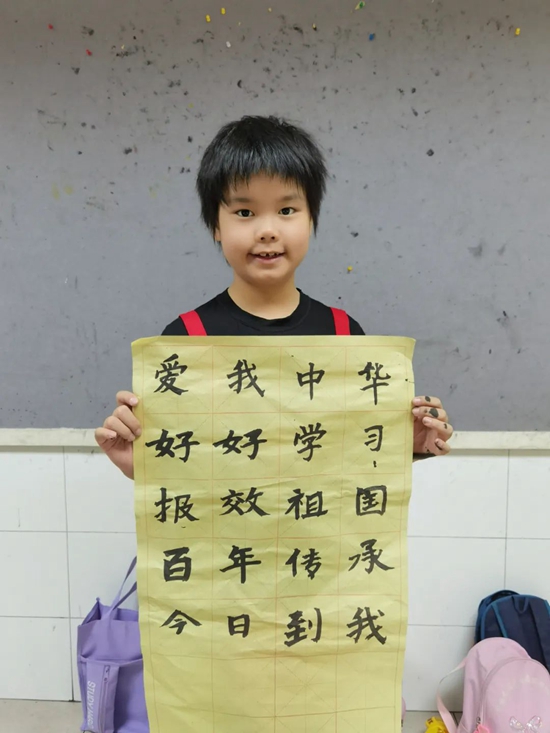 爱我中华
好好学习
报效祖国
百年传承
今日到我
STUDY BAG